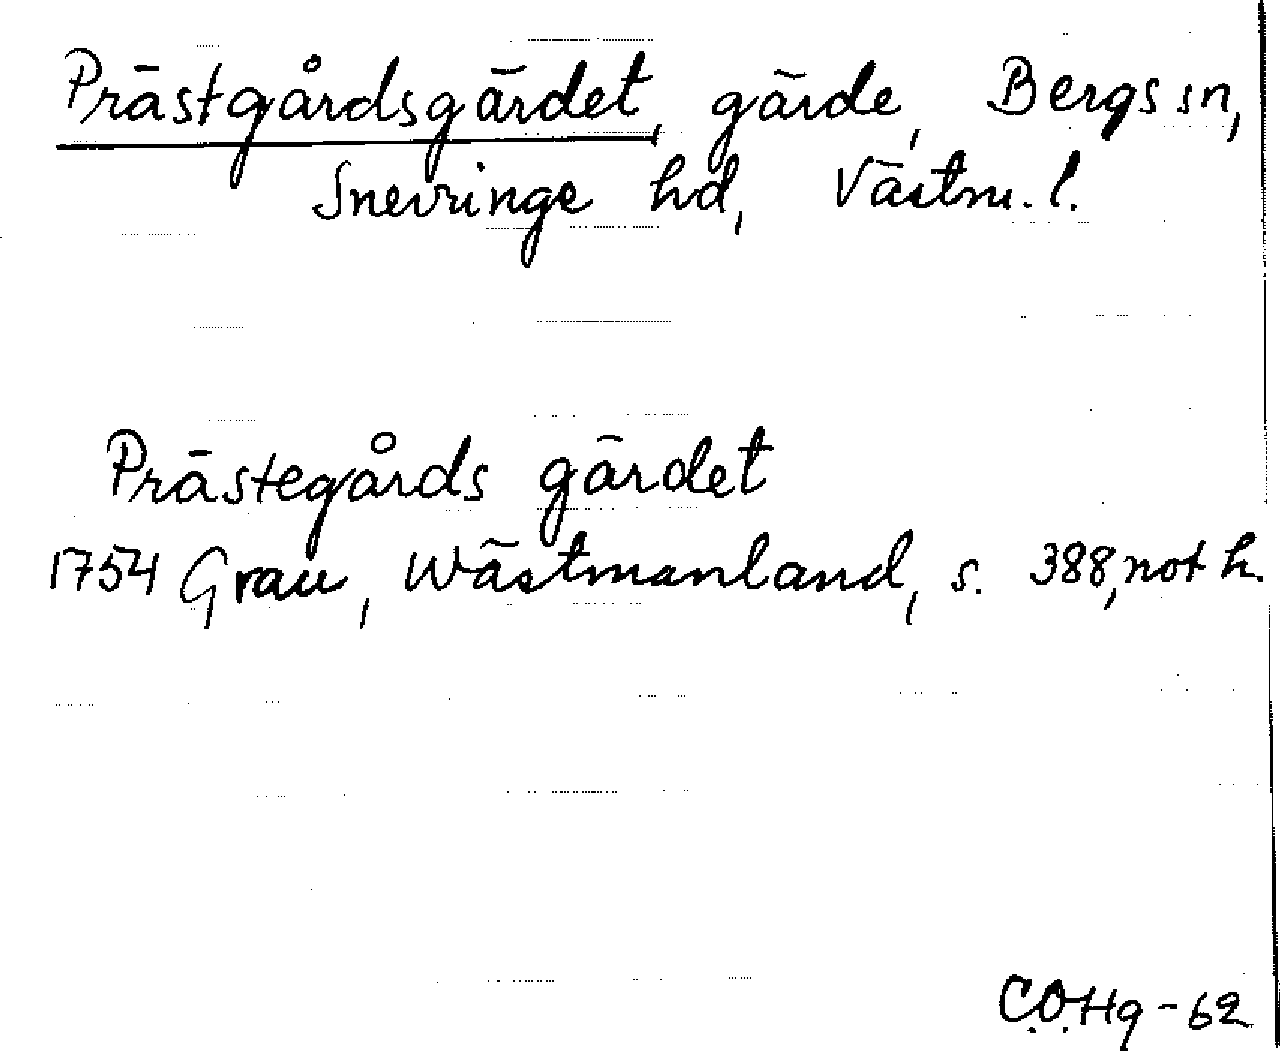 Prästgårdsgärdet, gärde, Bergs sn,
Snevringe hd, Västm. l.
Prästegårds gärdet
1754 Grau, Wästmanland, s. 388, not h.
C.O.Hg-62